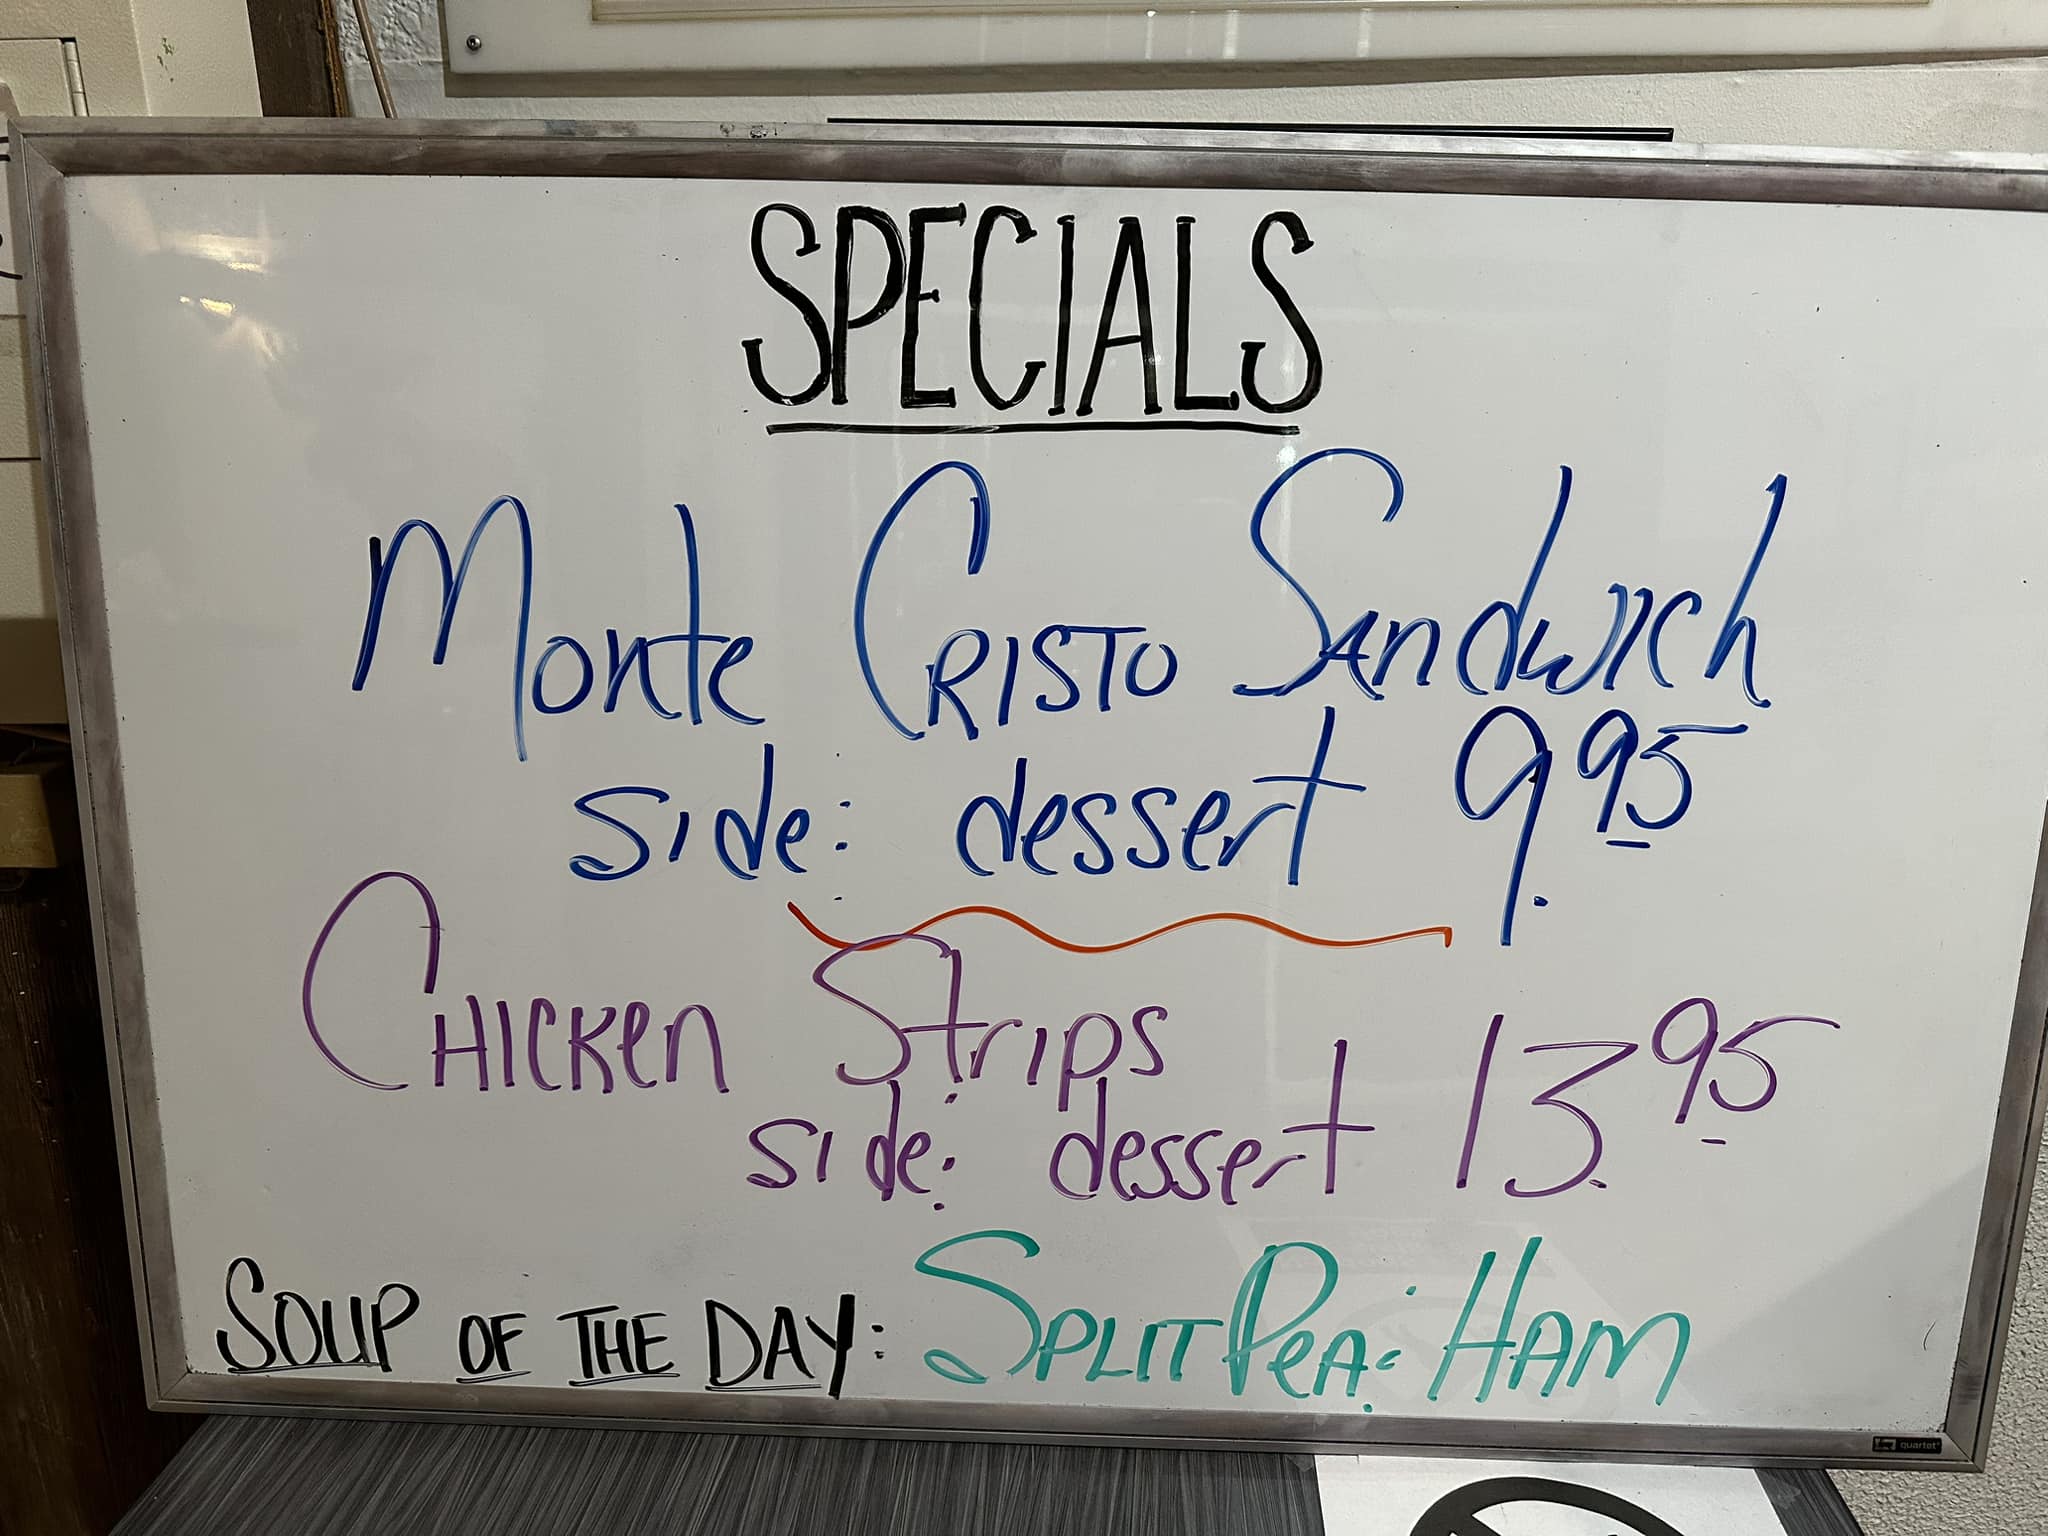 SPECIALS
Monte Cristo Sandwich
side: dessert 9.95
Chicken Strips
side: dessert 13.95
SOUP OF THE DAY: SPLIT PEA & HAM
quartet